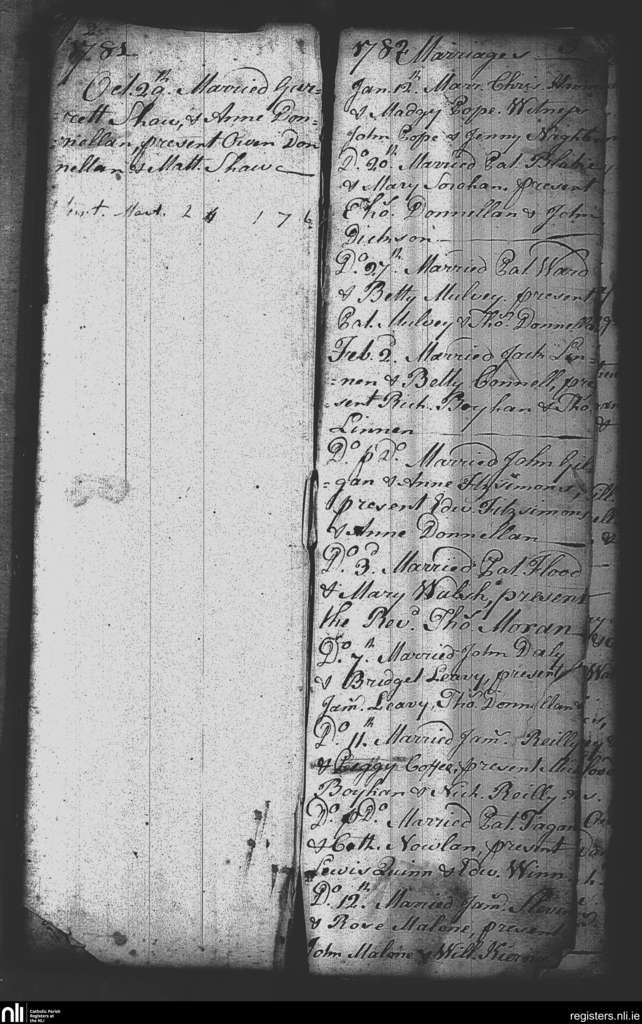 2
1781
Oct. 29th. Married Gar-
rett Shaw, & Anne Don=
=nellan, present Owen Don
nellan & Matt. Shaw
2 1 7
1782 Marriages 3
Jan. 12th. Marr. Chris.
& Madgy Pope. Witness
John Pope & Jenny
Do. 20th. Married Pat.
& Mary Sorohan, present
Thos. Donnellan & John
Dickson
Do. 27th. Married Pat Ward
& Betty Mulvey, present
Pat. Mulvey & Thos. Donnellan
Feb. 2d. Married Jack Lin=
=nen & Betty Connell, pre
=sent Rich. Boyhan & Thos.
Linnen
Do. pr. Do. Married John Gil
=gan & Anne Fitzsimons,
present Edw. Fitzsimons
& Anne Donnellan
Do. 3d. Married Pat. Flood
& Mary Walsh, present
the Revd. Thos. Moran
Do. 7th. Married John Daly
& Bridget Leavy, present
Jams. Leavy, Thos. Donnellan
Do. 11th. Married Jams. Reilly
& Peggy Coffee, present
Boyhan & Nich. Reilly
Do. pr. Do. Married Pat. Fagan
& Cath. Nowlan, present
Lewis Quinn & Edw. Winn
Do. 12th. Married Jams.
& Rose Malone, present
John Malone & Will. Kiernan
nli Catholic Parish
Registers at
the NLI
registers.nli.ie